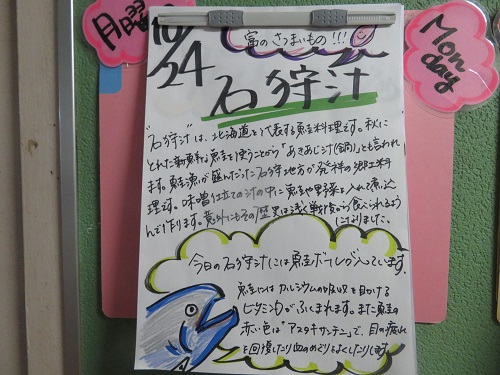 月曜
10/24
富のさつまいもの!!!
Monday
石狩汁
"石狩汁"は、北海道を代表する鮭料理です。秋に
とれた新鮮な鮭を使うことから「あきあじ汁(鍋)」とも言われ
ます。鮭漁が盛んだった石狩地方が発祥の郷土料
理です。味噌仕立ての汁の中に鮭や野菜を入れ煮込
んで作ります。意外にもその歴史は浅く戦後から食べられるよう
になりました。
今日の石狩汁には鮭ボールが入っています。
鮭には カルシウムの吸収を助ける
ビタミンDがふくまれます。また鮭の
赤い色は「アスタキサンチン」で、目の疲れ
を回復したり血のめぐりをよくしたりします。